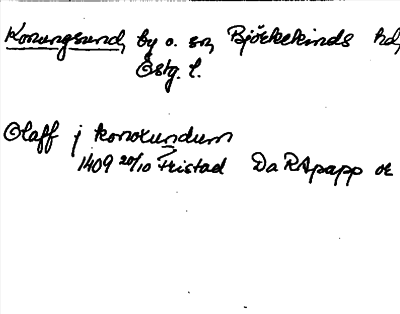 Konungsund, by o. sn, Björkekinds hd,
Östg. l.
Olaff j konoxundum
1409 20/10 Fristad Da RApapp or